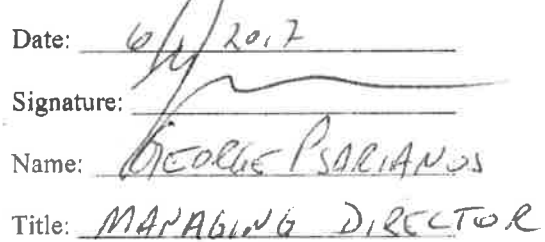 Date: 6/1/2017
Signature:
Name: GEORGE PSARIANOS
Title: MANAGING DIRECTOR